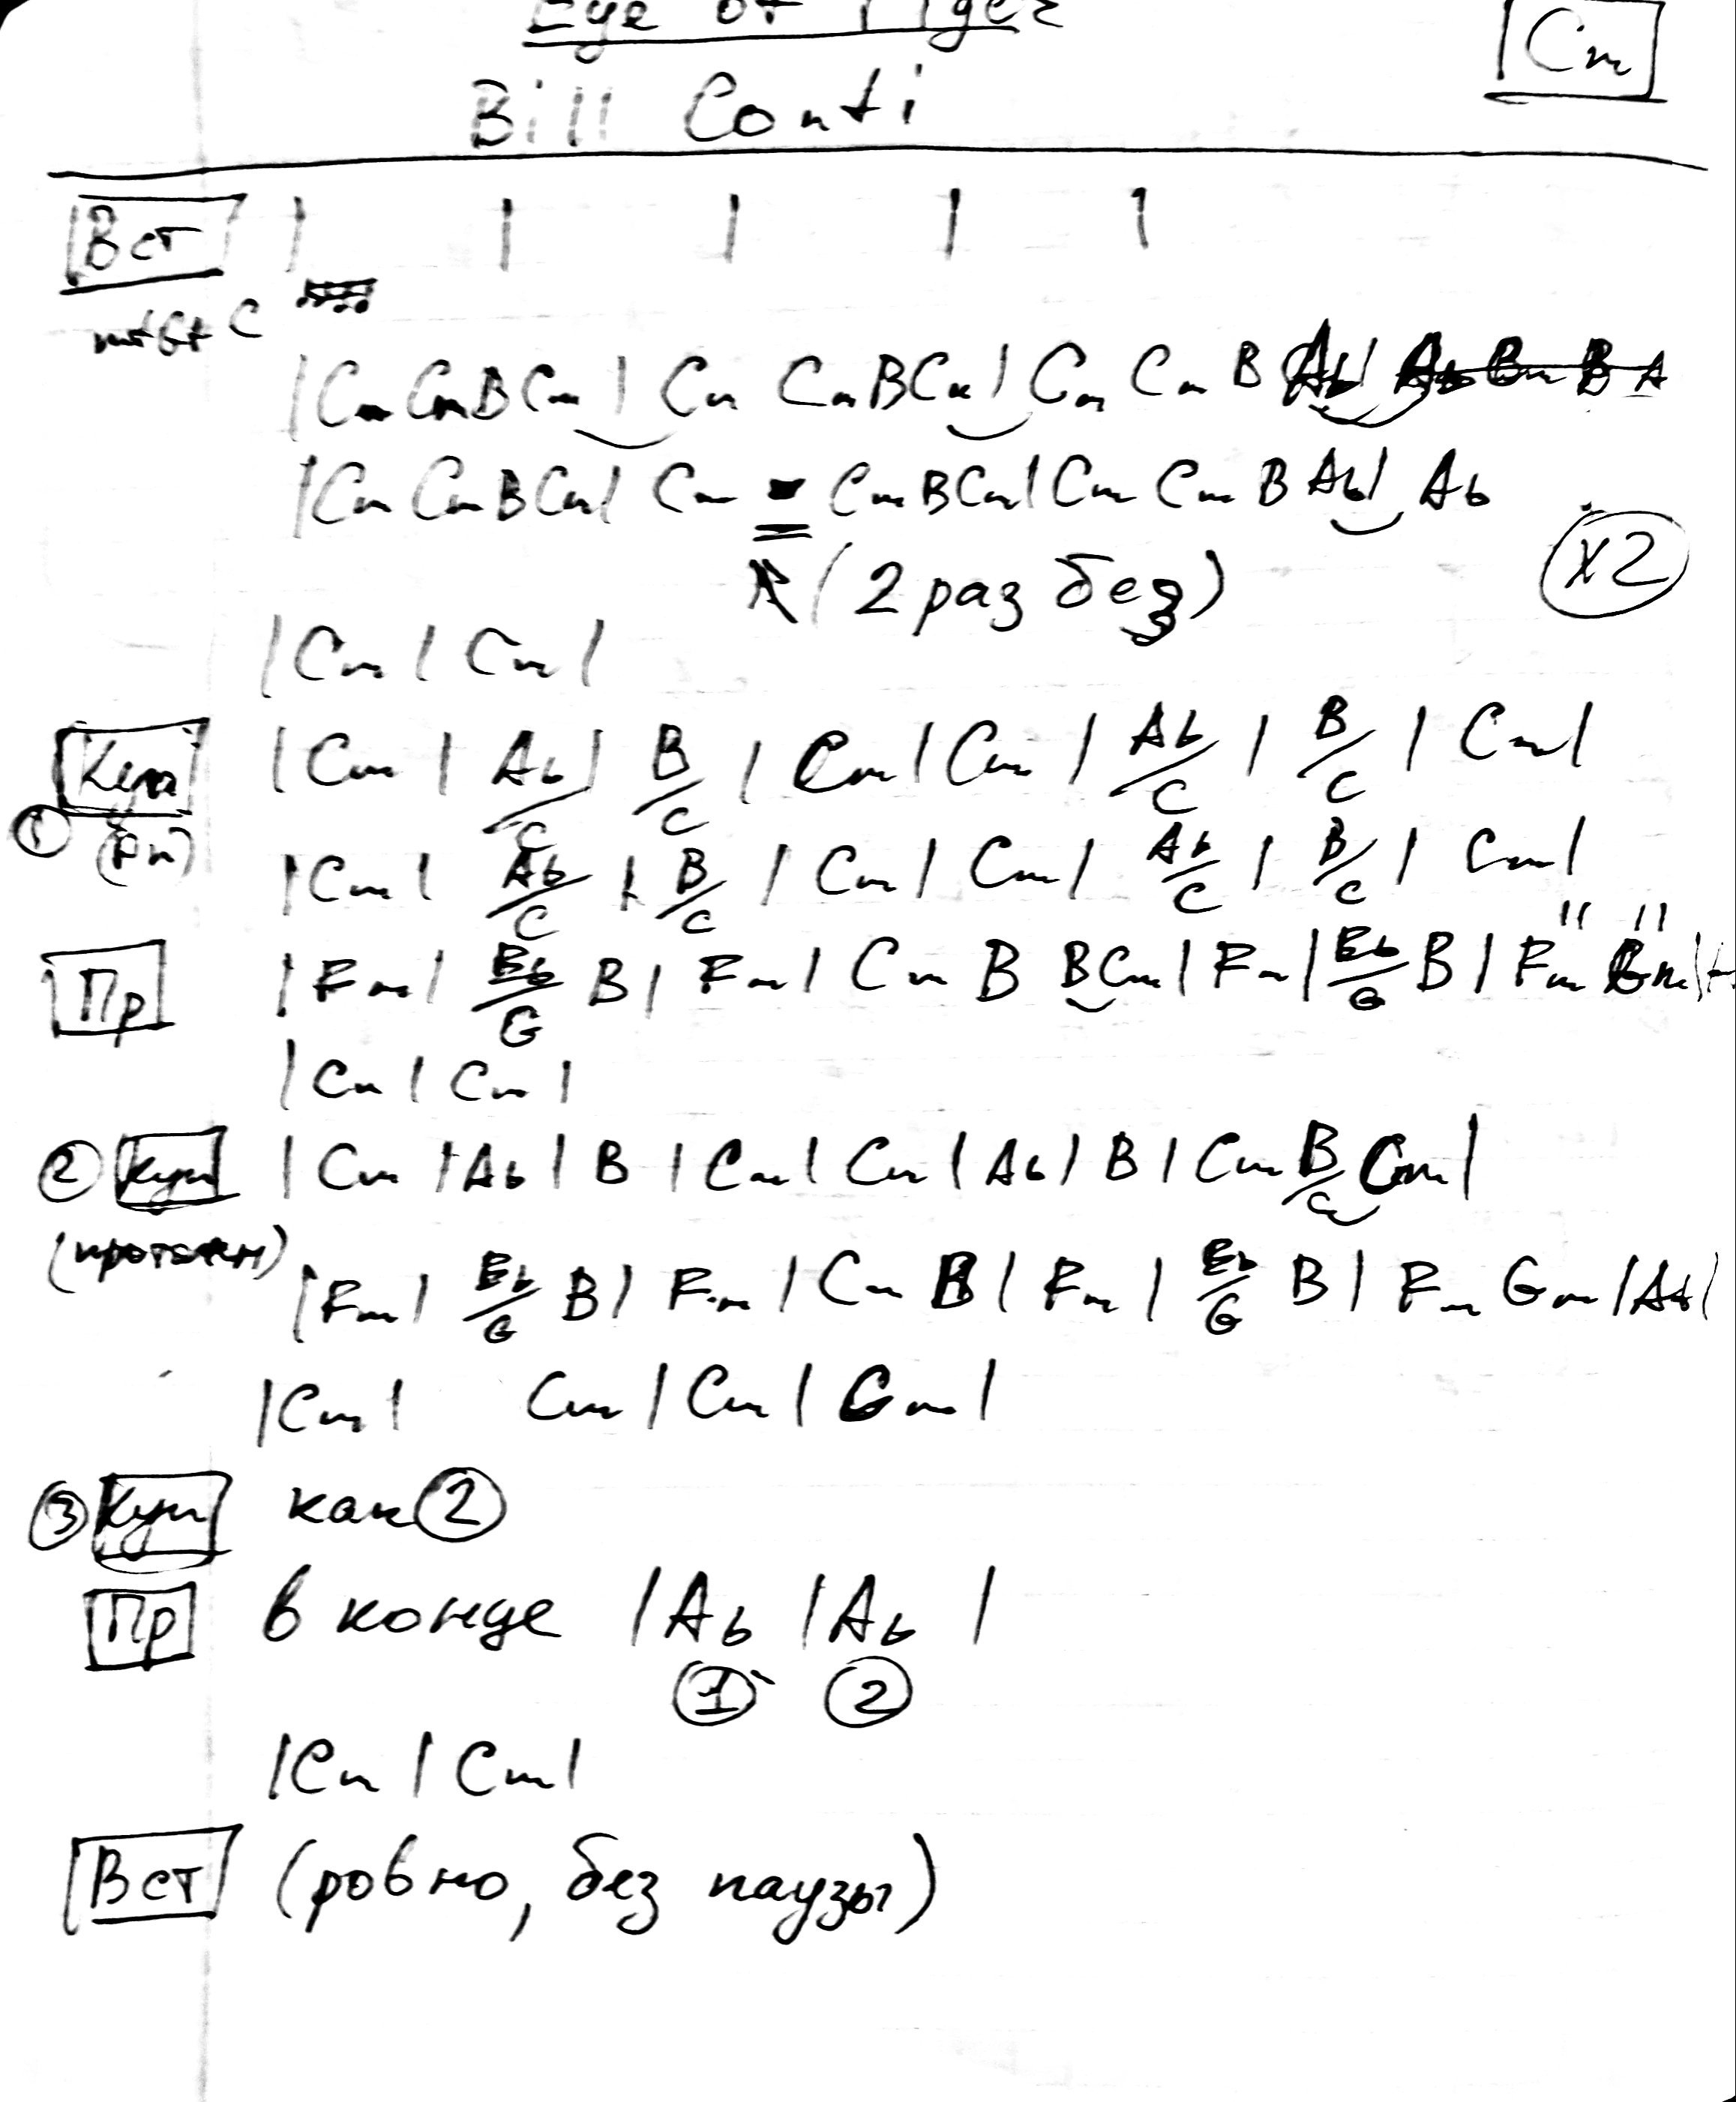 Eye of Tiger
Cm
Bill Conti
Вст | | | | |
C
|Cm Cm B Cm| Cm Cm B Cm| Cm Cm B Ab|
|Cm Cm B Cm| Cm Cm B Cm| Cm Cm B Ab| Ab
x2
(2 раз без)
|Cm| Cm|
Куп |Cm| Ab/C| B/C| Cm| Cm| Ab/C| B/C| Cm|
1
|Cm| Ab/C| B/C| Cm| Cm| Ab/C| B/C| Cm|
Пр |Fm| Eb/G B| Fm| Cm B B Cm| Fm| Eb/G B| Fm Gm|
|Cm| Cm|
2 Куп |Cm| Ab| B| Cm| Cm| Ab| B| Cm B/C Cm|
(протяжн)
|Fm| Eb/G B| Fm| Cm B| Fm| Eb/G B| Fm Gm| Ab|
|Cm| Cm| Cm| Cm|
3 Куп как 2
Пр в конце |Ab |Ab |
1 2
|Cm| Cm|
Вст (ровно, без паузы)